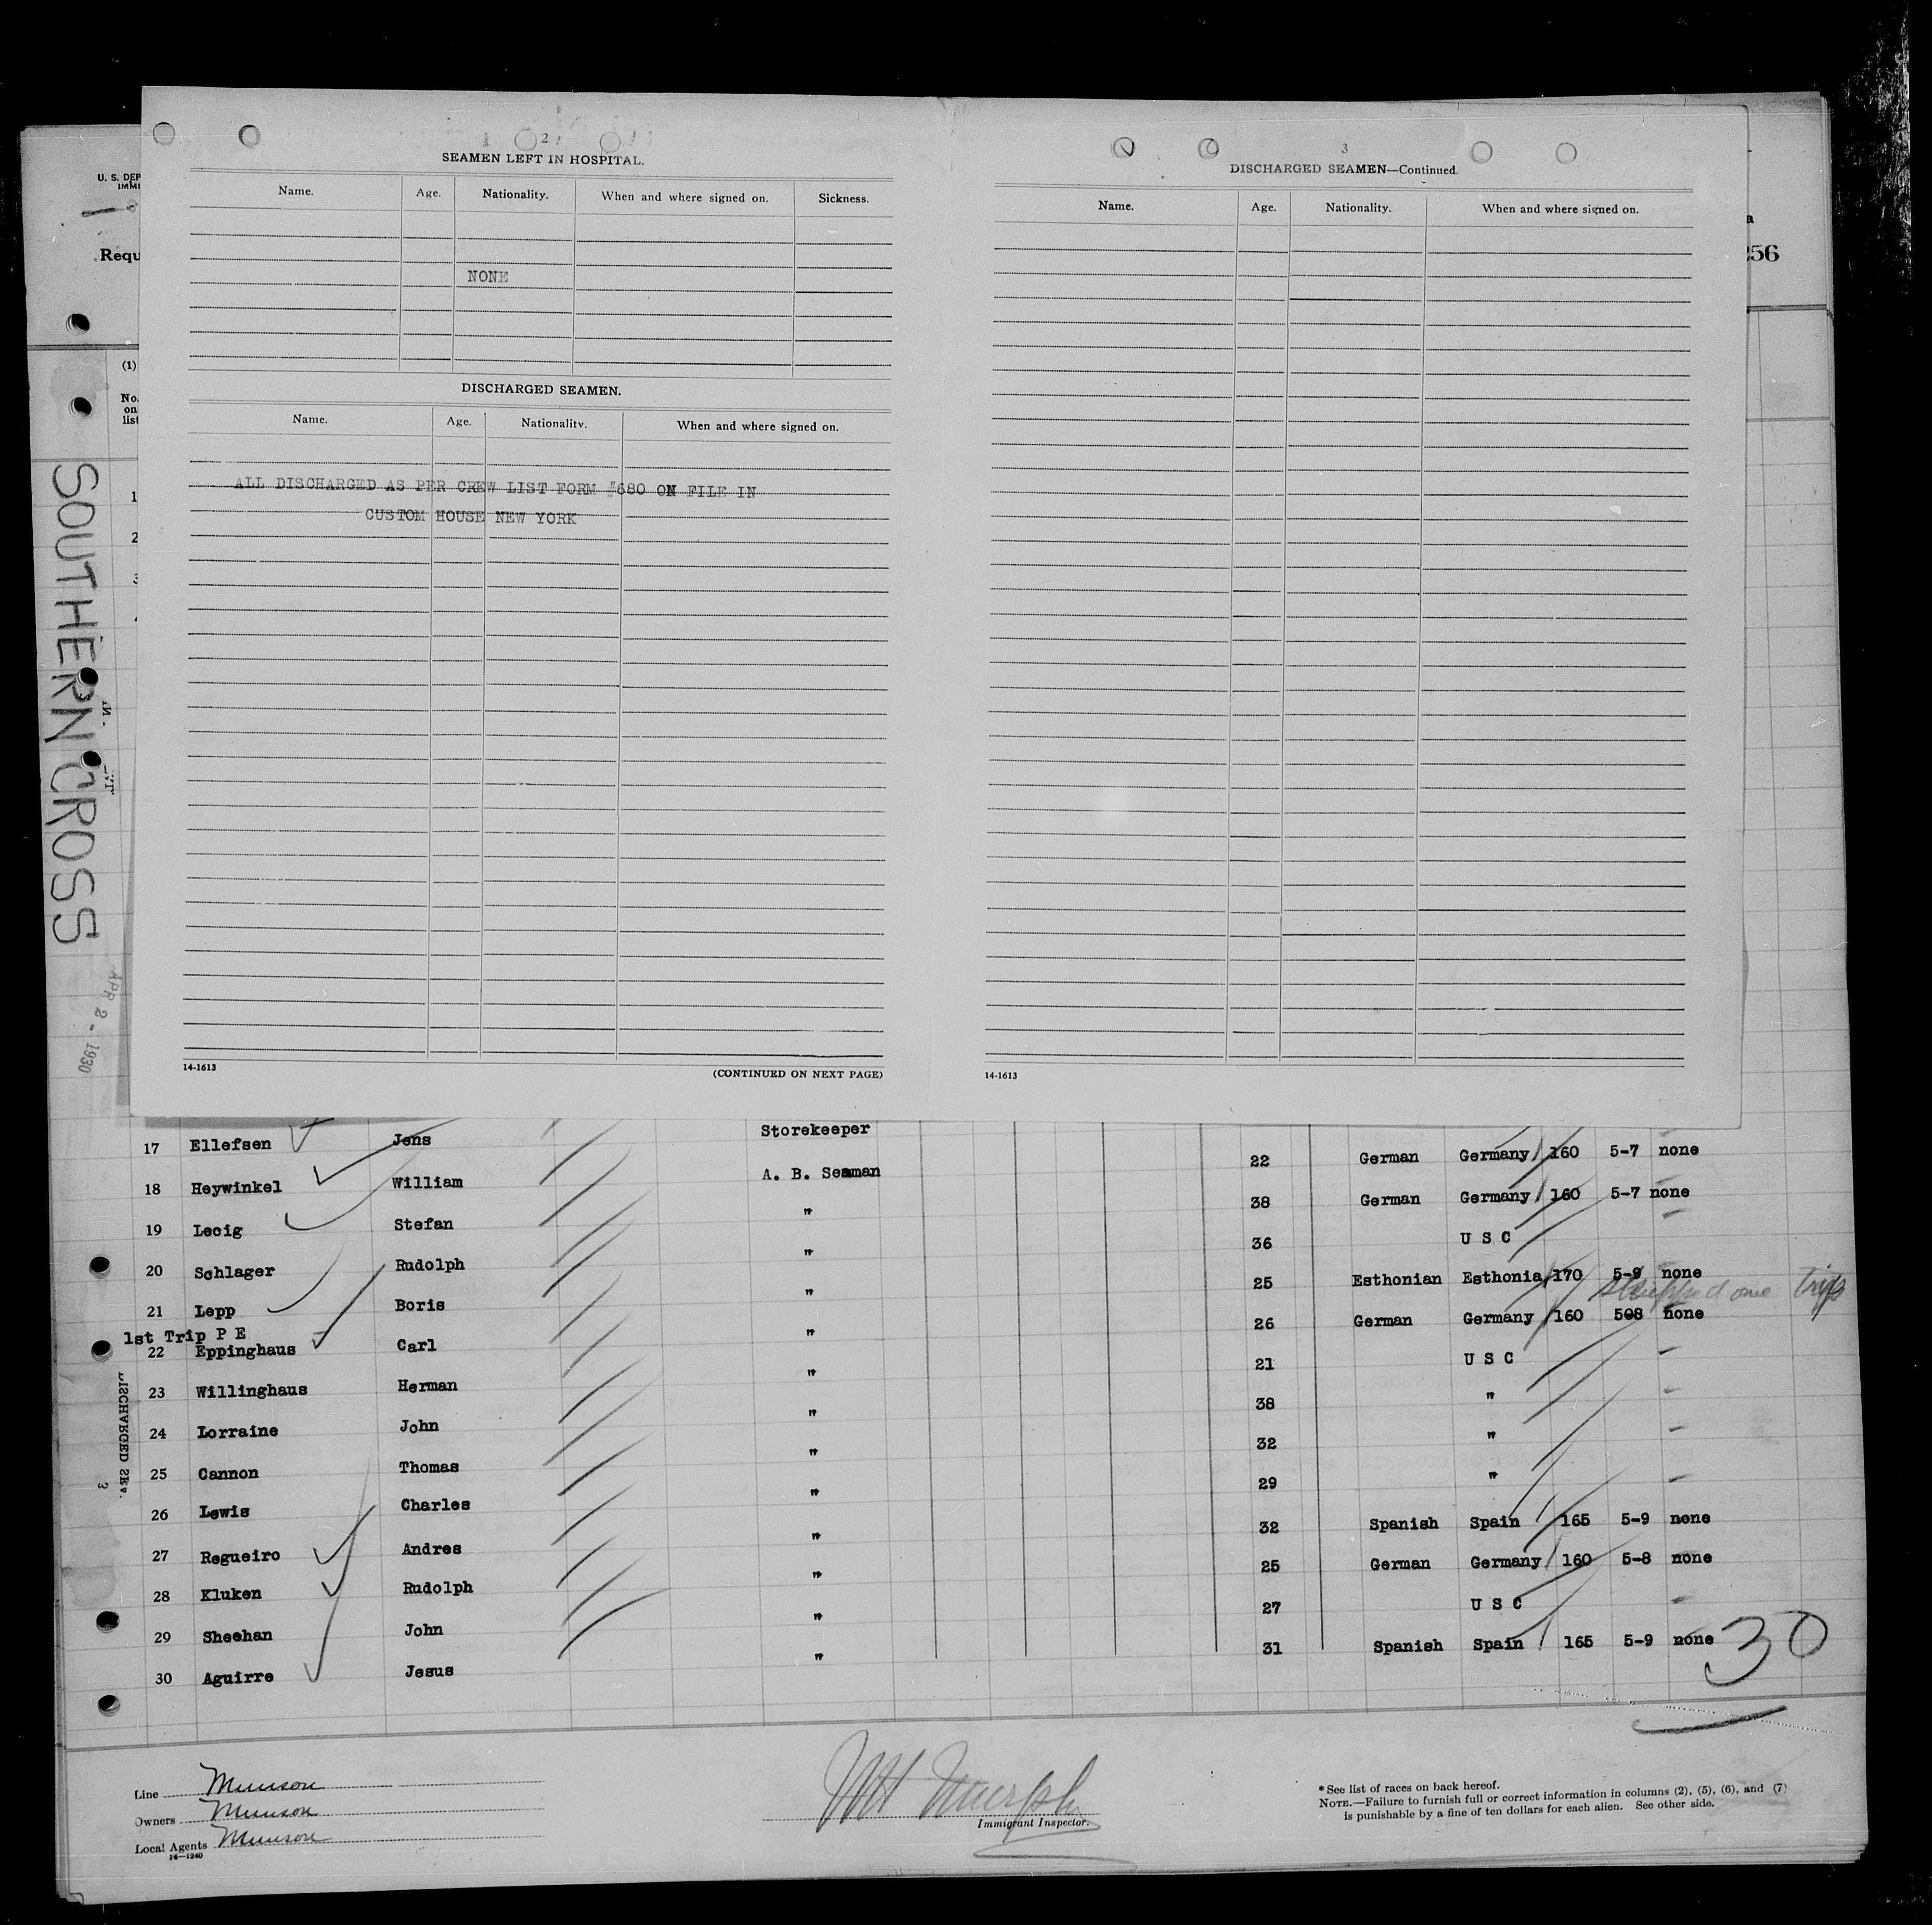 U. S. DEP
IMMI
Requ
256
(1)
No.
on
list
1
2
3
SOUTHERN CROSS
APR 2 - 1930
2
SEAMEN LEFT IN HOSPITAL.
Name. Age. Nationality. When and where signed on. Sickness.
NONE
DISCHARGED SEAMEN.
Name. Age. Nationality. When and where signed on.
ALL DISCHARGED AS PER CREW LIST FORM #680 ON FILE IN
CUSTOM HOUSE NEW YORK
14-1613 (CONTINUED ON NEXT PAGE)
3
DISCHARGED SEAMEN—Continued.
Name. Age. Nationality. When and where signed on.
14-1613
17 Ellefsen Jens Storekeeper
18 Heywinkel William A. B. Seaman 22 German Germany 160 5-7 none
19 Lecig Stefan " 38 German Germany 160 5-7 none
20 Schlager Rudolph " 36 U S C -
21 Lepp Boris " 25 Esthonian Esthonia 170 5-9 none
shipped one trip
1st Trip P E
22 Eppinghaus Carl " 26 German Germany 160 508 none
23 Willinghaus Herman " 21 U S C -
24 Lorraine John " 38 " -
25 Cannon Thomas " 32 " -
26 Lewis Charles " 29 " -
27 Regueiro Andres " 32 Spanish Spain 165 5-9 none
28 Kluken Rudolph " 25 German Germany 160 5-8 none
29 Sheehan John " 27 U S C -
30 Aguirre Jesus " 31 Spanish Spain 165 5-9 none
30
DISCHARGED SE
3
Line Munson
Owners Munson
Local Agents Munson
14-1240
WH Murphy
Immigrant Inspector.
* See list of races on back hereof.
NOTE.—Failure to furnish full or correct information in columns (2), (5), (6), and (7)
is punishable by a fine of ten dollars for each alien. See other side.